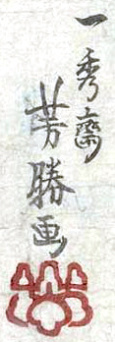 一秀齋
芳勝画